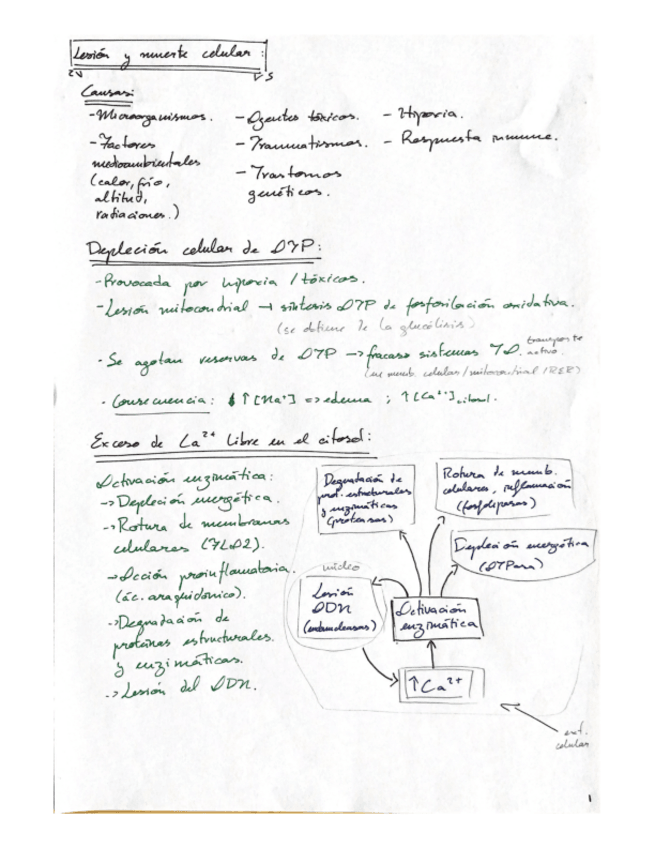 Lesión y muerte celular:
Causas:
- Microorganismos.
- Factores
medioambientales
(calor, frío,
altitud,
radiaciones.)
- Agentes tóxicos.
- Traumatismos.
- Trastornos
genéticos.
- Hipoxia.
- Respuesta inmune.
Depleción celular de ATP:
- Provocada por hipoxia / tóxicos.
- Lesión mitocondrial → síntesis ATP de fosforilación oxidativa.
(se obtiene de la glucólisis)
- Se agotan reservas de ATP → fracaso sistemas TA. transporte
activo.
(en memb. celular / mitocondrial / RER)
- Consecuencia: ↑[Na⁺] => edema ; ↑[Ca²⁺] citosol.
Exceso de Ca²⁺ libre en el citosol:
Activación enzimática:
-> Depleción energética.
-> Rotura de membranas
celulares (FLA2).
-> Acción proinflamatoria.
(ác. araquidónico).
-> Degradación de
proteínas estructurales
y enzimáticas.
-> Lesión del ADN.
Degradación de
prot. estructurales
y enzimáticas
(proteasas)
Rotura de memb.
celulares, inflamación
(fosfolipasas)
Depleción energética
(ATPasa)
núcleo
Lesión
ADN
(endonucleasas)
Activación
enzimática
↑Ca²⁺
celular
1